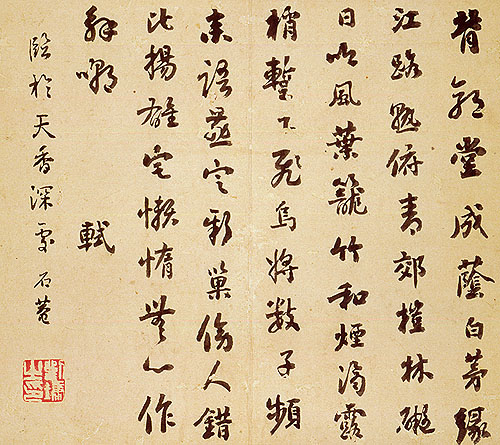 背郭堂成蔭白茅緣
江路熟俯青郊榿林礙
日吟風葉籠竹和煙滴露
梢暫下飛烏將數子頻
来語燕定新巢傍人錯
比揚雄宅懶惰無心作
解嘲 軾
臨於天香深處 石菴
劉墉之印